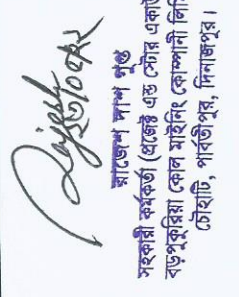 Rajesh
রাজেশ দাশ গুপ্ত
সহকারী কর্মকর্তা (প্রজেক্ট এন্ড স্টোর একাউ
বড়পুকুরিয়া কোল মাইনিং কোম্পানী লিমি
চৌহাটি, পার্বতীপুর, দিনাজপুর।